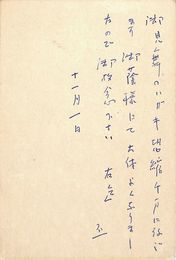 御見舞のハガキ恐縮千万に存じ
ます 御蔭様にて大体よくなりまし
たので御放念下さい
十一月一日